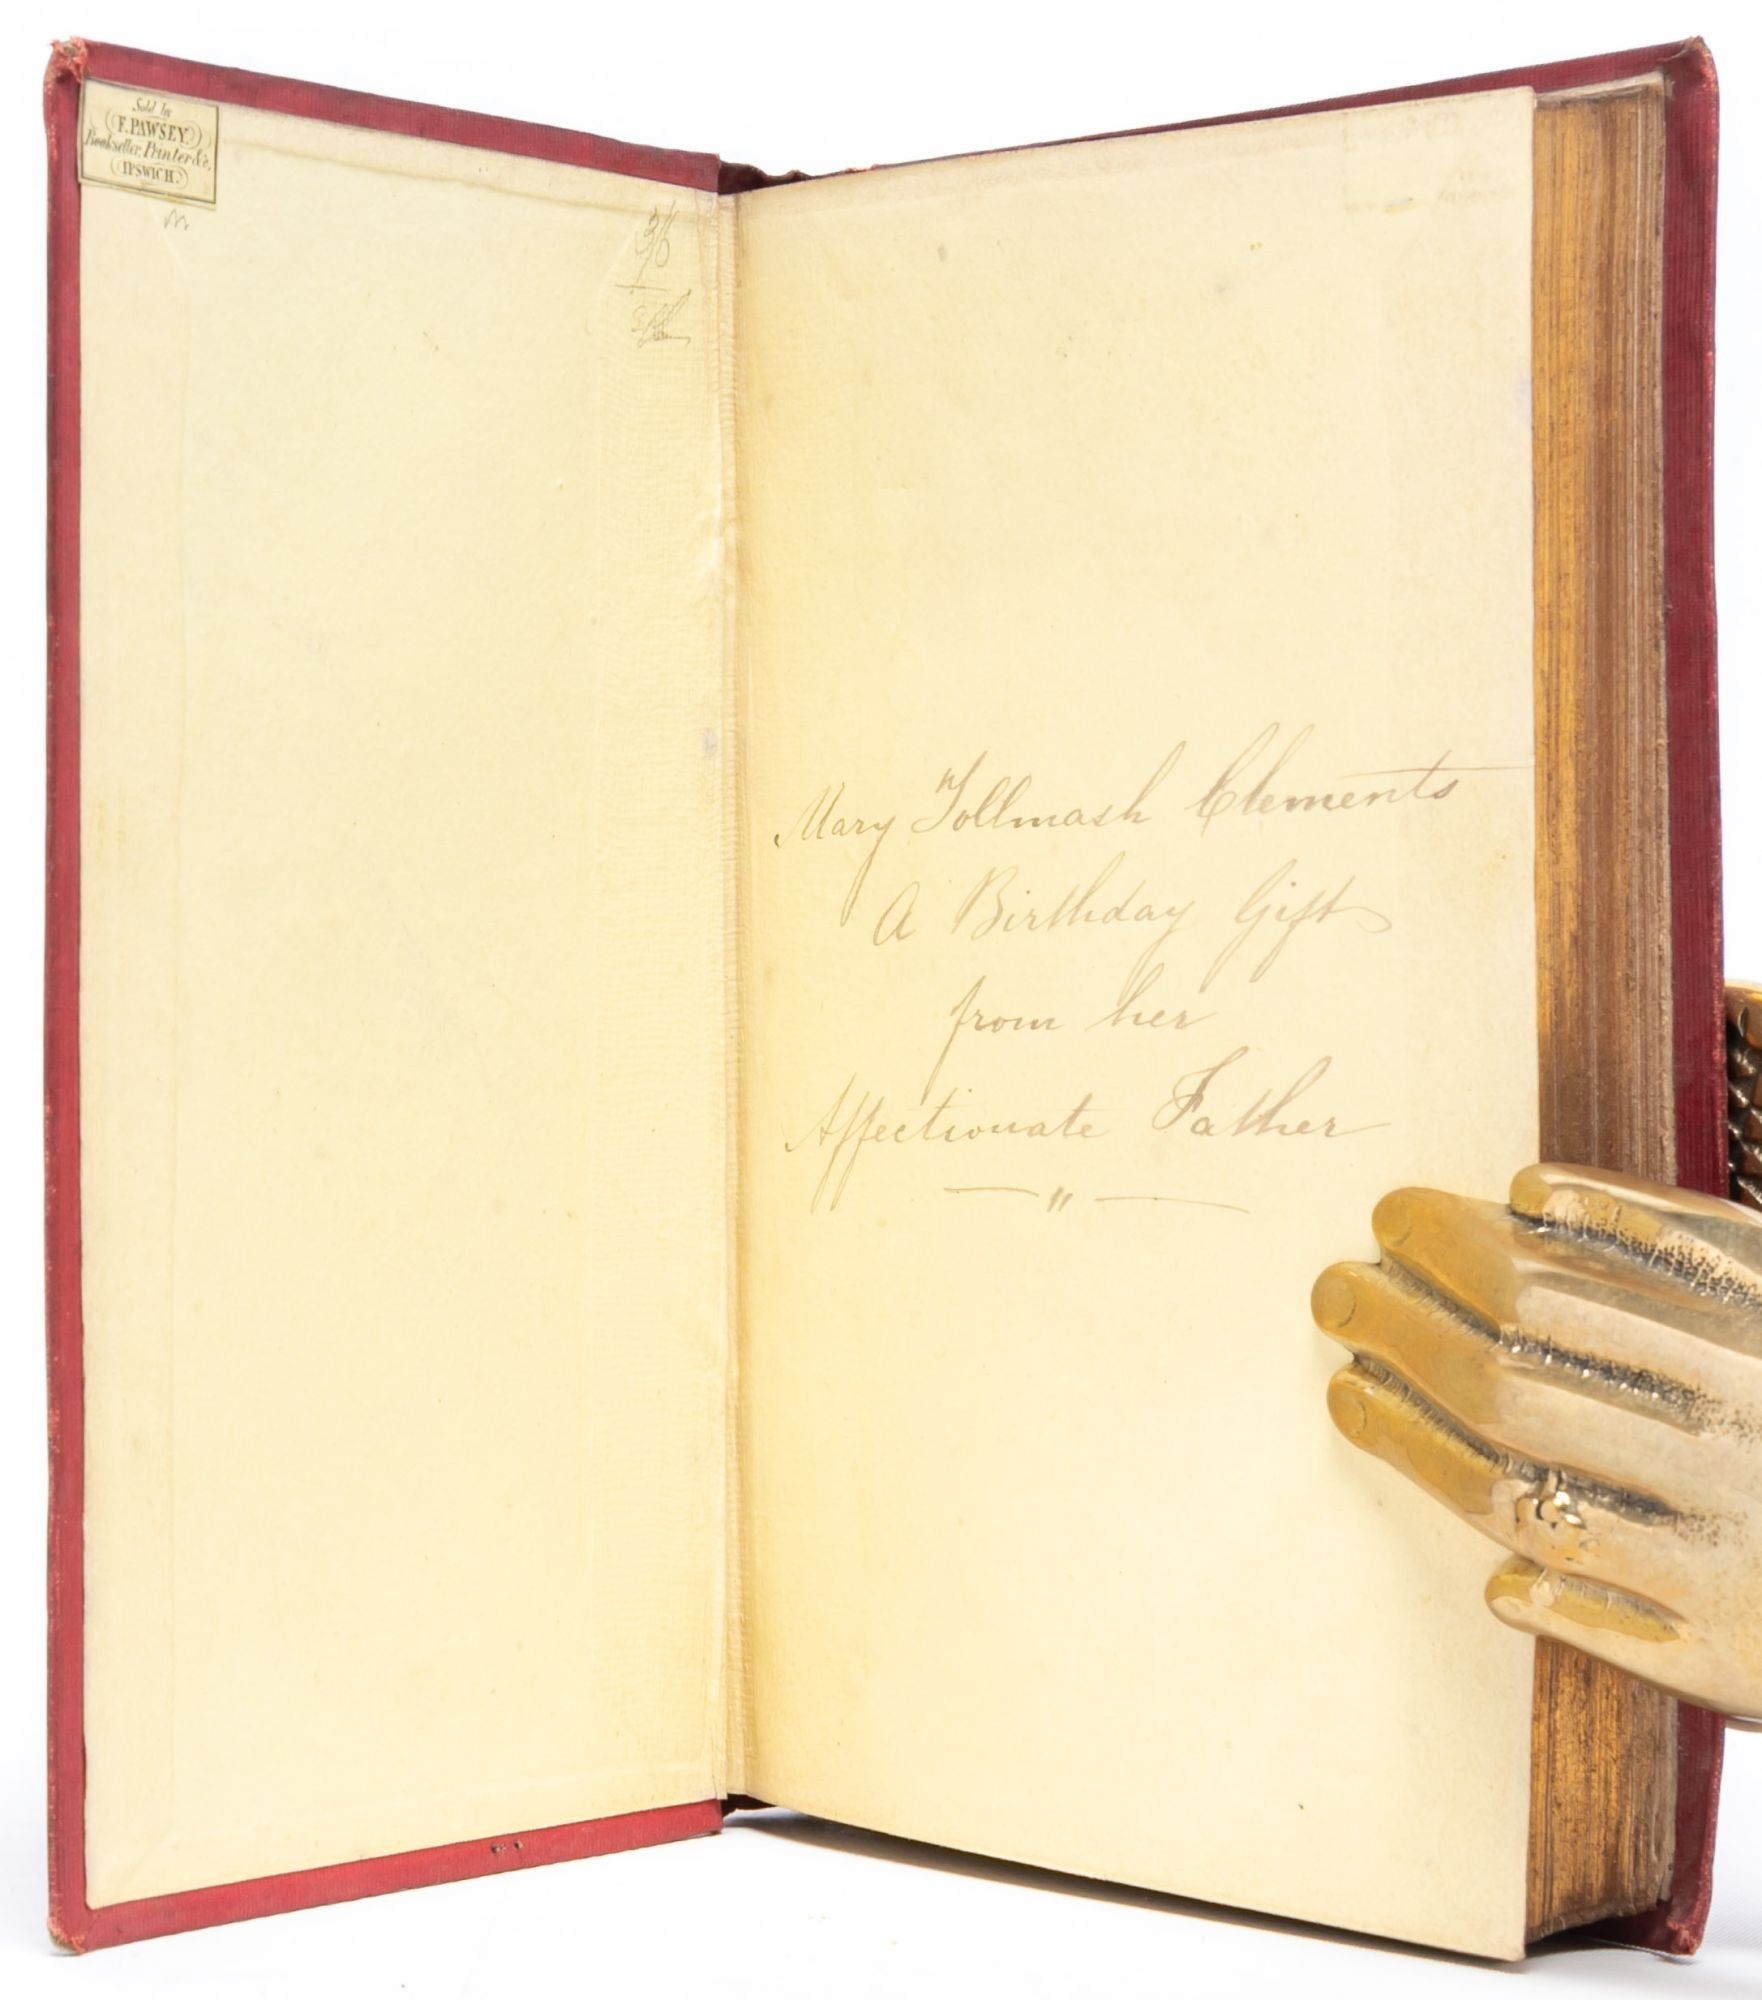 Sold by
F. PAWSEY.
Bookseller, Printer &c.
IPSWICH.
3/6
Mary Tollmash Clements
A Birthday Gift
from her
Affectionate Father